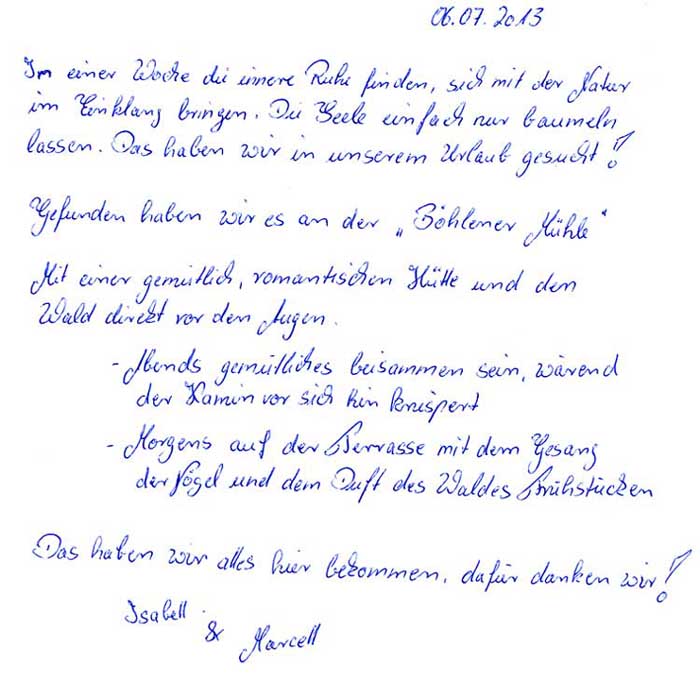 06.07.2013
In einer Woche die innere Ruhe finden, sich mit der Natur
im Einklang bringen. Die Seele einfach nur baumeln
lassen. Das haben wir in unserem Urlaub gesucht!
Gefunden haben wir es an der „Böhlener Mühle"
Mit einer gemütlich, romantischen Hütte und den
Wald direkt vor den Augen.
- Abends gemütliches beisammen sein, wärend
der Kamin vor sich hin knispert
- Morgens auf der Terrasse mit dem Gesang
der Vögel und dem Duft des Waldes Frühstücken
Das haben wir alles hier bekommen, dafür danken wir!
Isabell
& Marcell